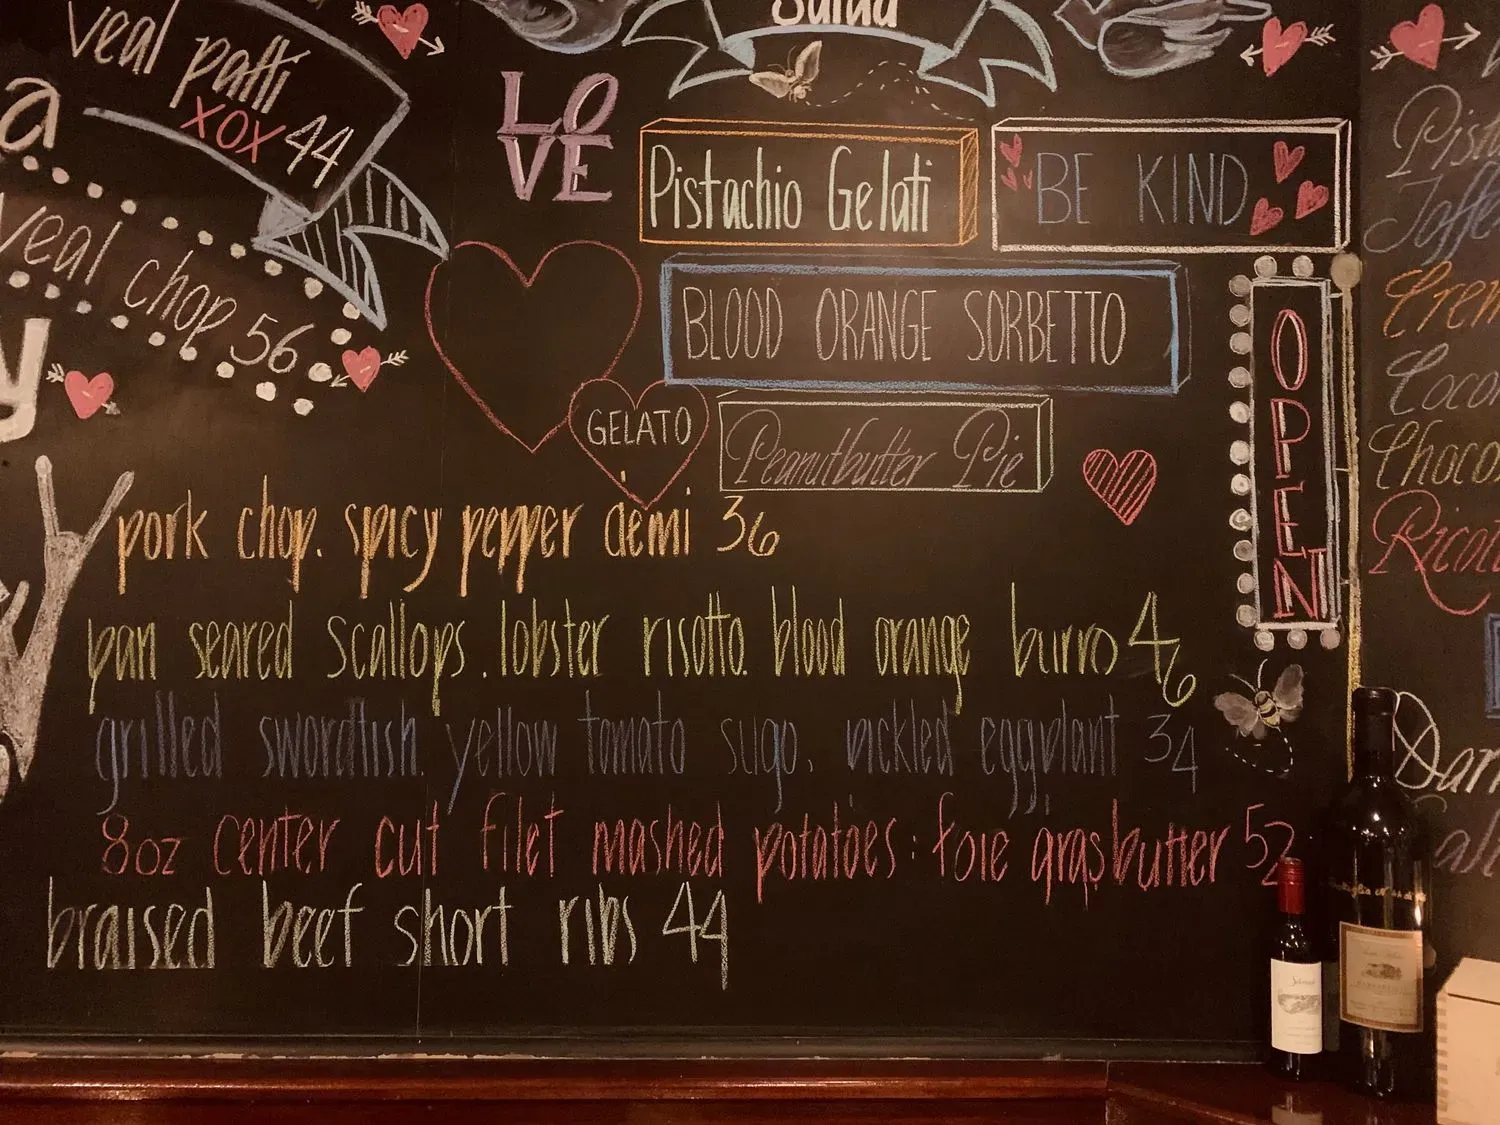 Salad
veal patti
xox 44
veal chop 56
LO
VE
Pistachio Gelati
BE KIND
BLOOD ORANGE SORBETTO
GELATO
Peanutbutter Pie
OPEN
pork chop. spicy pepper demi 36
pan seared scallops. lobster risotto. blood orange burro 46
grilled swordfish. yellow tomato sugo. pickled eggplant 34
8oz center cut filet mashed potatoes: foie gras butter 52
braised beef short ribs 44